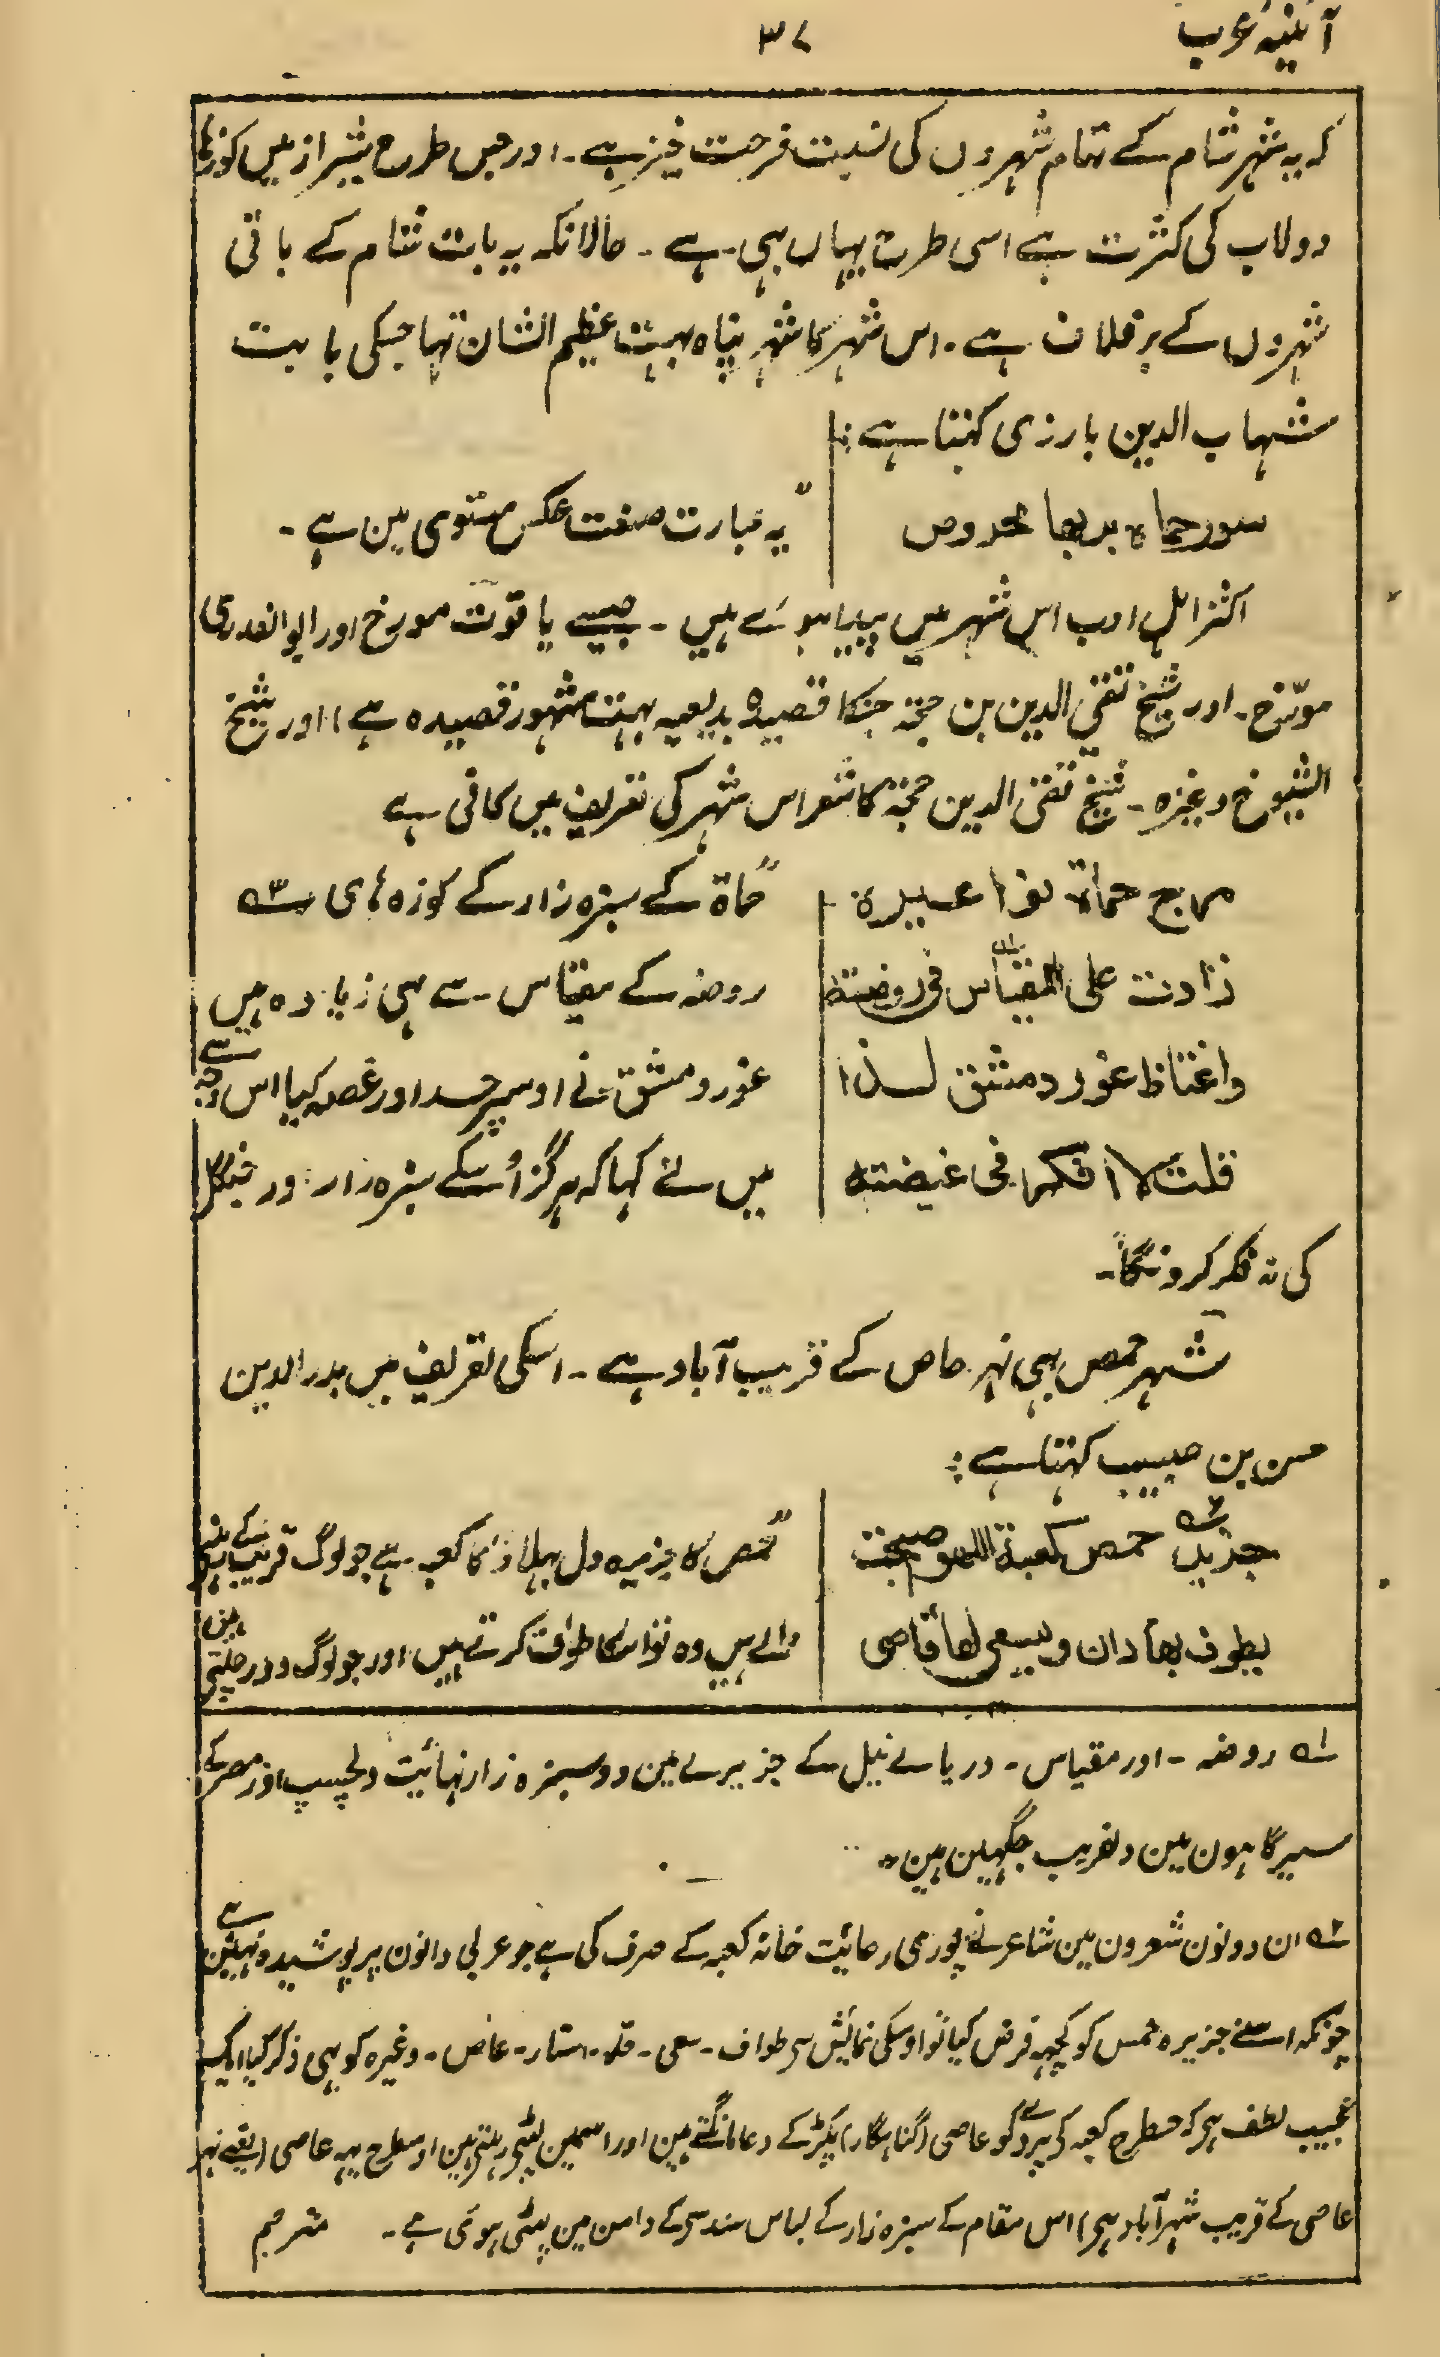 آئینہ عرب
۳۷
کہ یہ شہر شام کے تمام شہروں کی نسبت فرحت خیز ہے ۔ اور جس طرح شیراز میں کوزہا
دولاب کی کثرت ہے اسی طرح یہاں بہی ہے ۔ حالانکہ یہ بات شام کے باقی
شہروں کے برخلاف ہے ۔ اس شہر کا شہر پناہ بہت عظیم الشان تہا جسکی بابت
شہاب الدین بارزی کہتا ہے :
سور حماہ بربہا محروس
"یہ عبارت صنعت عکس مستوی مین ہے ۔
اکثر اہل ادب اس شہر میں پیدا ہوئے ہیں ۔ جیسے یاقوت مورخ اور ابوالفدری
مورّخ ۔ اور شیخ تقی الدین بن حجۃ جنکا قصیدہ بدیعیہ بہت مشہور قصیدہ ہے ، اور شیخ
الشیوخ وغیرہ ۔ شیخ تقی الدین حجۃ کا شعر اس شہر کی تعریف میں کافی ہے
مرج حماۃ نواعیرہ
"حماۃ کے سبزہ زار کے کوزہ ہای
زادت علی المقیاس فی روضتہ
روضہ کے مقیاس سے بہی زیادہ ہیں
واغتاظ غور دمشق لذا
غور دمشق نے اوسپر حسد اور غصہ کیا اس وجہ سے
قلت لا افکر فی غیضتہ
میں نے کہا کہ ہرگز اُسکے سبزہ زار اور جنگل
کی نہ فکر کرونگا"۔
شہر حمص بہی نہر عاص کے قریب آباد ہے ۔ اسکی تعریف میں بدرالدین
حسن بن حبیب کہتا ہے :
حمص کعبۃ اللہو صبحت
"حمص کا جزیرہ دل بہلاو کا کعبہ ہے جو لوگ قریب کے
یطوف بہا دان ویسعی لہا قاصی
والے ہیں وہ تو اسکا طواف کرتے ہیں اور جو لوگ دور
۱ روضہ ۔ اور مقیاس ۔ دریائے نیل کے جزیرے مین دو سبزہ زار نہائیت دلچسپ اور مصر کے
سیرگاہون مین دلفریب جگہین ہین ۔
۲ ان دونون شعرون مین شاعر نے پوری رعائیت خانہ کعبہ کے صرف کی ہے جو عربی دانون پر پوشیدہ نہین ہے
چونکہ اسنے جزیرہ حمص کو کعبہ فرض کیا تو اوسکی نمائش طواف ۔ سعی ۔ ۔ استار ۔ عاص ۔ وغیرہ کو بہی ذکر کیا ایک
عجیب لطف ہی کہ جسطرح کعبہ کے پردے کو عاصی (گناہگار) پکڑ کے دعا مانگتے ہین اور اسمین لپٹے رہتے ہین اوسطرح یہہ عاصی (یعنے نہر
عاصی کے قریب شہر آباد ہی) اس مقام کے سبزہ زار کے لباس سندسی کے دامن مین لپٹی ہوئی ہے ۔ مترجم